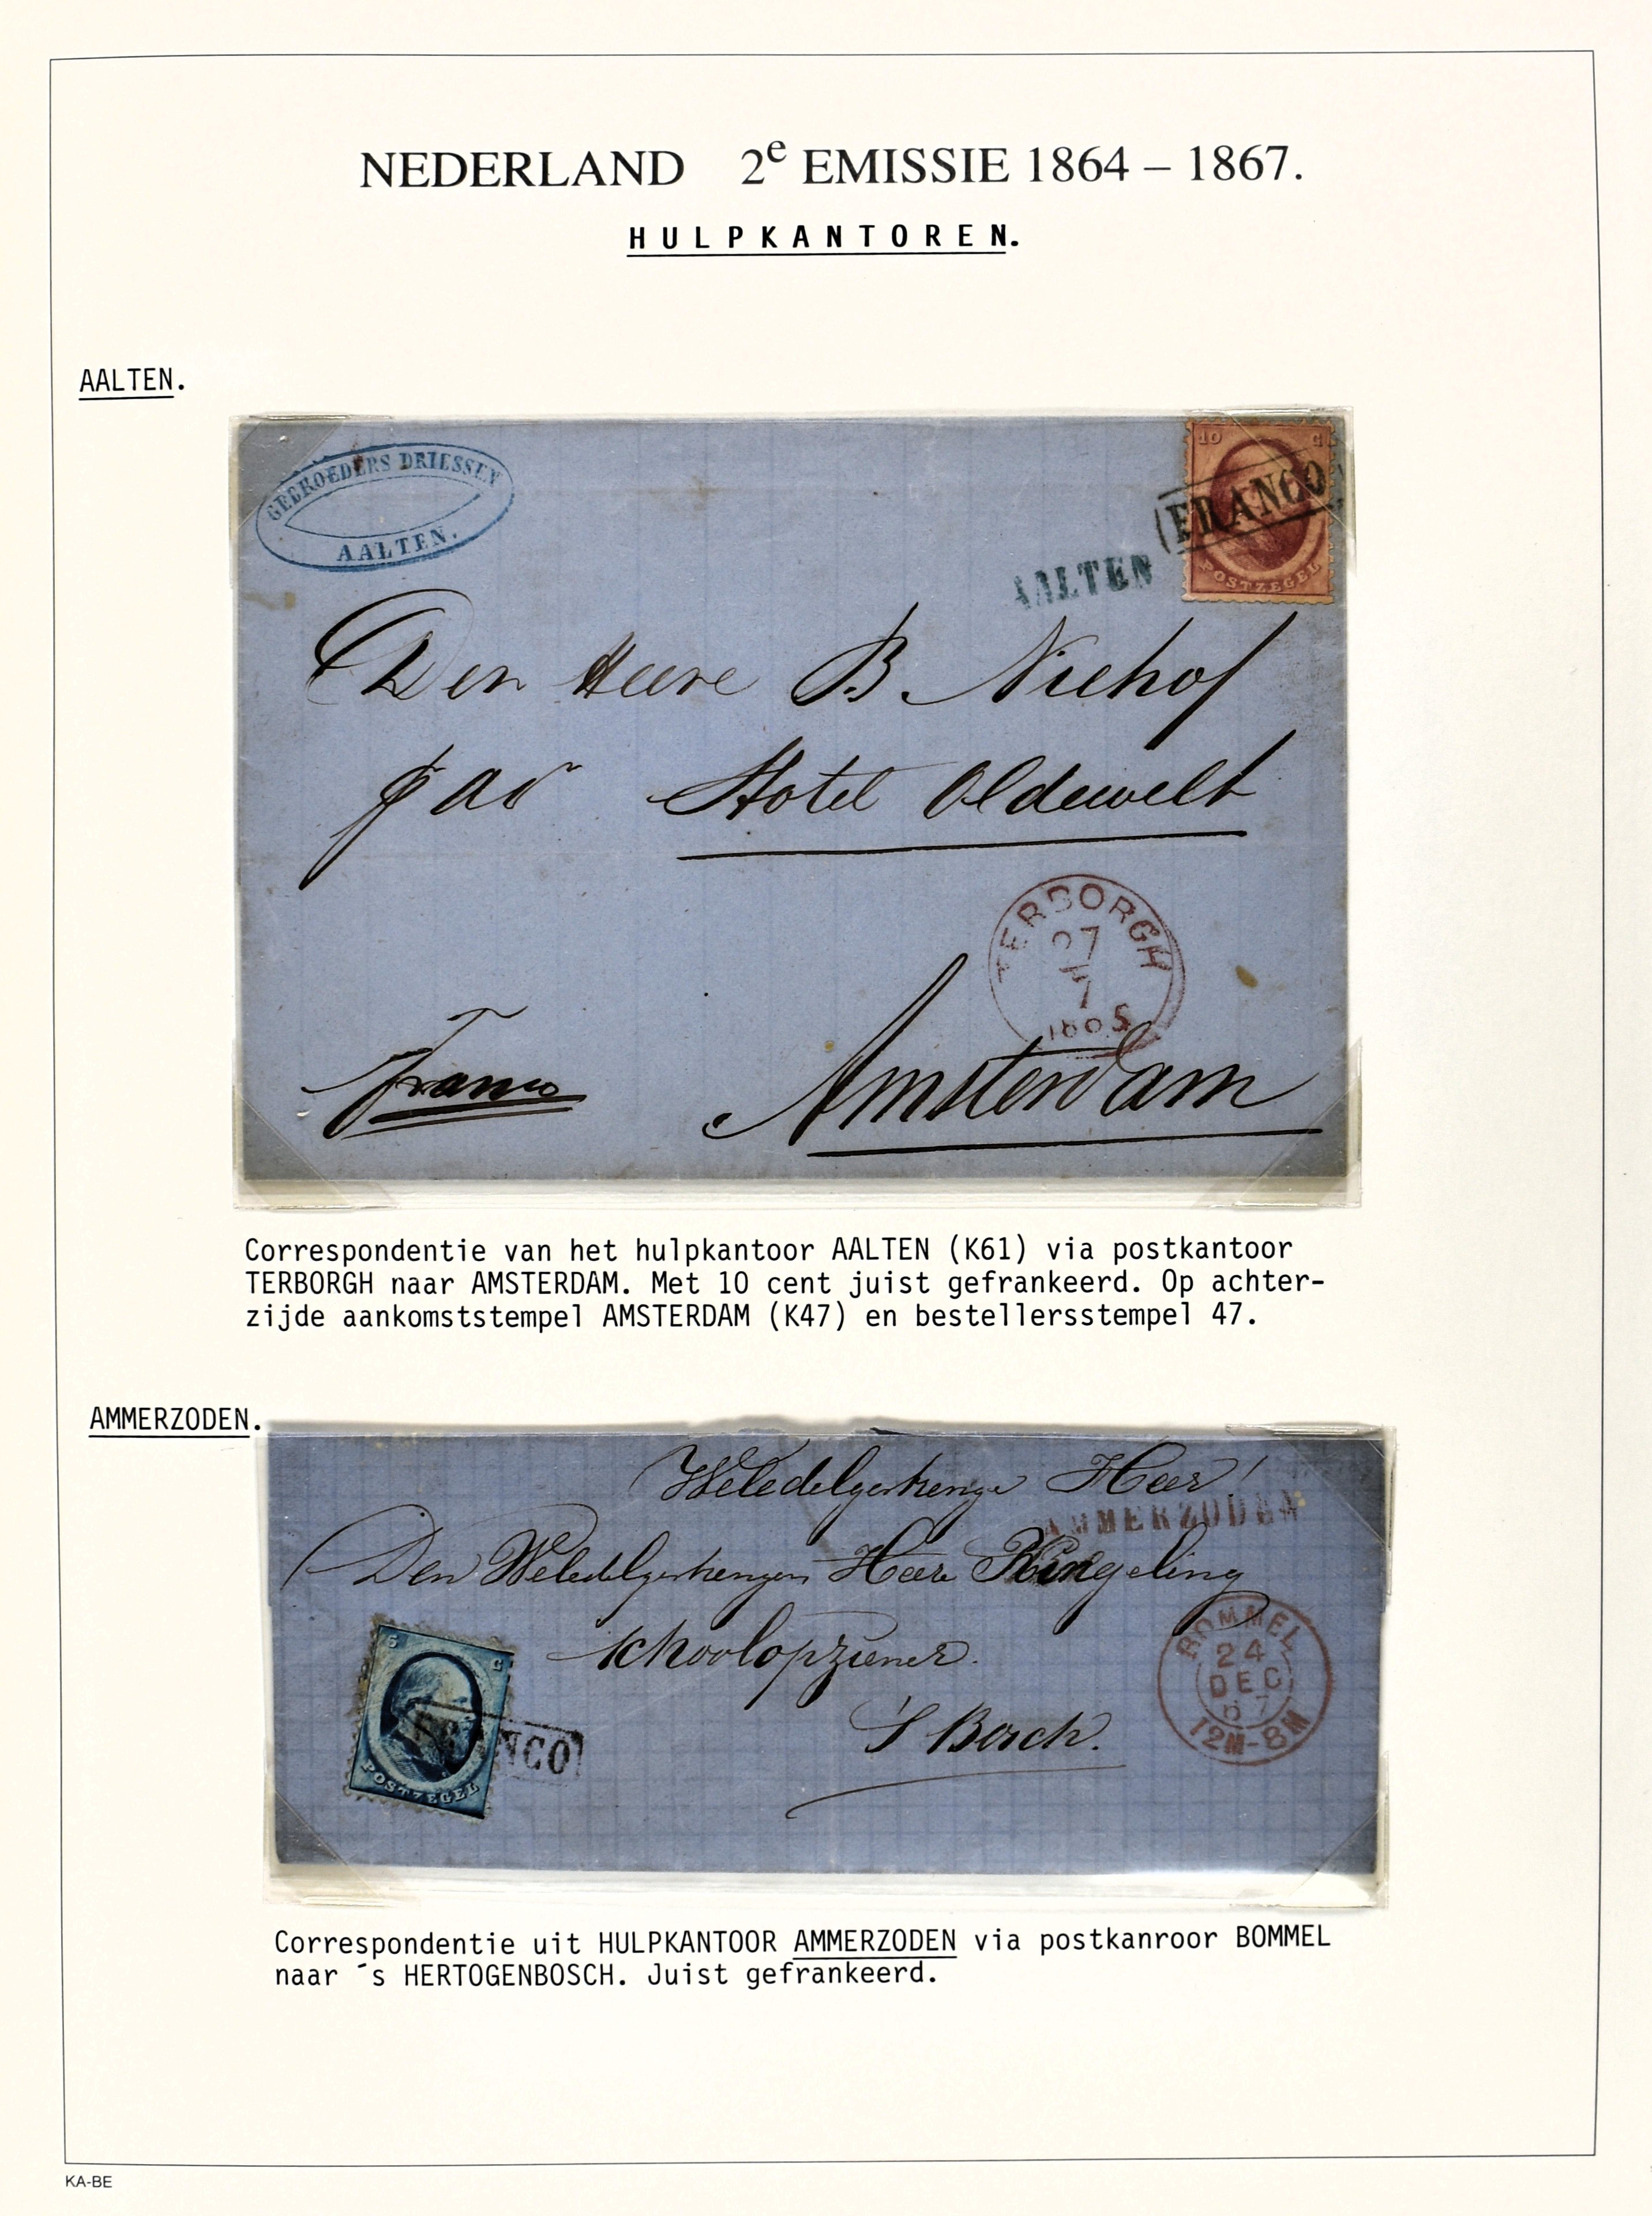 NEDERLAND 2e EMISSIE 1864 – 1867.
HULPKANTOREN.
AALTEN.
GEBROEDERS DRIESSEN
AALTEN.
10 C
FRANCO
POSTZEGEL
AALTEN
Den Heere B. Niehof
Hotel Oldewelt
TERBORGH
27
7
1865
Franco
Amsterdam
Correspondentie van het hulpkantoor AALTEN (K61) via postkantoor
TERBORGH naar AMSTERDAM. Met 10 cent juist gefrankeerd. Op achter-
zijde aankomststempel AMSTERDAM (K47) en bestellersstempel 47.
AMMERZODEN.
Weledelgestrenge Heer!
AMMERZODEN
Den Weledelgestrengen Heere Ringeling
schoolopziener.
'S Bosch.
5 C
FRANCO
POSTZEGEL
BOMMEL
24
DEC
67
12M-8M
Correspondentie uit HULPKANTOOR AMMERZODEN via postkanroor BOMMEL
naar ´s HERTOGENBOSCH. Juist gefrankeerd.
KA-BE